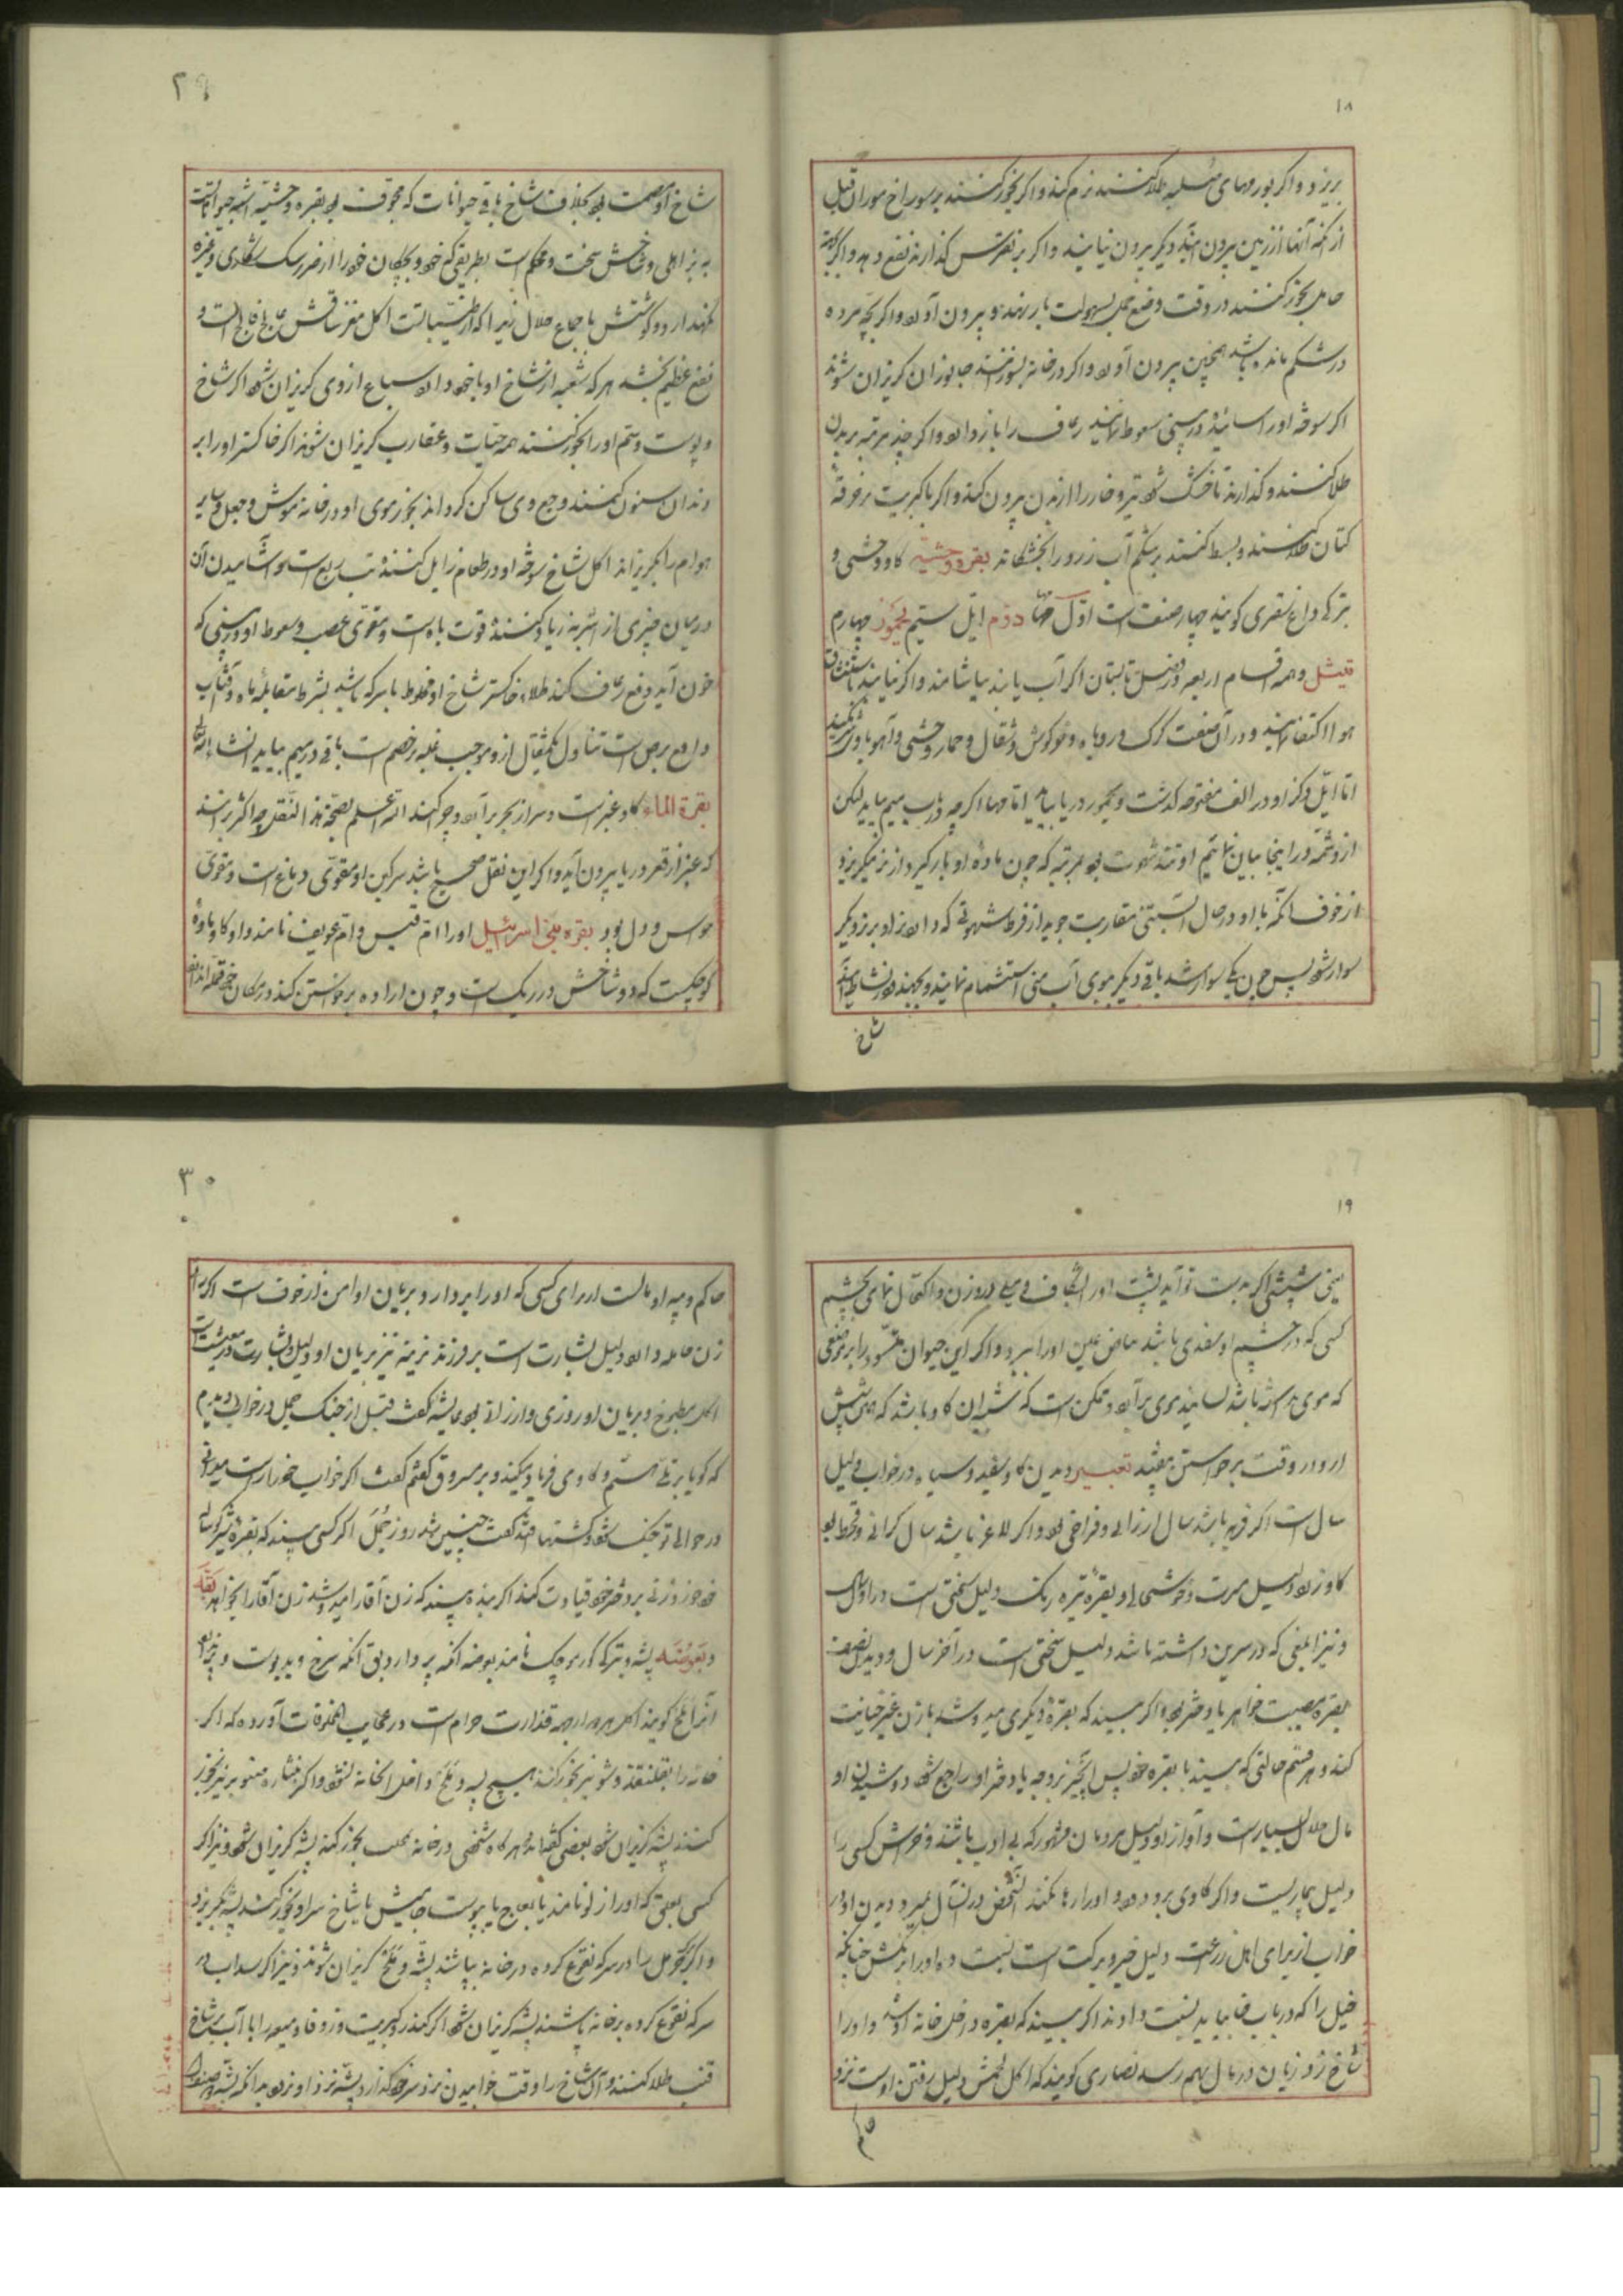 ١٨
بریزد و اگر بورمهای صلبه طلا کنند نرم کند و اگر بخور کنند بر سوراخ موران قبل
از آنکه آنها از زمین بیرون آیند دیگر بیرون نیایند و اگر بر نقرس گذارند نفع دهد و اگر
حامل بخور کنند در وقت وضع حمل بسهولت بار نهد و بیرون آورد و اگر بچه مرده
در شکم مانده باشد همچنین بیرون آورد و اگر در خانه بسوزنند جانوران گریزان شوند
اگر سوخته او را سائیده در بینی سعوط نمایند رعاف را باز دارد و اگر چند مرتبه بر بدن
طلا کنند و گذارند تا خشک شود تیر و خار را از بدن بیرون کند و اگر با کبریت بر خرقه
کتان طلا کنند و بسط کنند بر شکم آب زرد را بخشکاند بقره وحشیه گاو وحشی و
بترکی داغ سقری گویند چهار صنف است اول مها دوم ایل سیم یحمور چهارم
ثیتل و همه اقسام اربعه در فصل تابستان اگر آب یابند بیاشامند و اگر نیابند باستنشاق
هوا اکتفا نمایند و در آن صفت گرگ و روباه و خرگوش و شغال و حمار وحشی و آهو با او شریکند
اما ایل ذکر او در الف مفتوحه گذشت و یحمور در یا بیاید اما مها اگر چه در باب میم بیاید لیکن
از او شمه در اینجا بیان نمائیم او تند شهوت بود بمرتبه که چون ماده او بار گیرد از نر میگریزد
از خوف آنکه با او در حال آبستنی مقاربت جوید از فرط شهوتی که دارد نر او بر نر دیگر
سوار شود پس چون یکی سوار شد باقی دیگر بوی آب منی استشمام نمایند و بجهند و در نشاط آیند
شاخ
٢٩
شاخ او مصمت بود بخلاف شاخ باقی حیوانات که مجوف بود بقره وحشیه اشبه حیوانات است
به بز اهلی و شاخش سخت و محکم است بطریقی که خود و بچگان خود را از ضرر سگ شکاری و غیره
نگهدارد و گوشتش باجماع حلال زیرا که از طیبات است اکل مغز ساقش
نفع عظیم بخشد هر که شعبه از شاخ او با خود دارد سباع از وی گریزان شود اگر شاخ
و پوست و سم او را بخور کنند همه حیات و عقارب گریزان شوند اگر خاکستر او را بر
دندان سنون کنند وجع وی ساکن گرداند بخور موی او در خانه موش و جعل و سایر
هوام را بگریزاند اکل شاخ سوخته او در طعام زایل کننده تب ربع است و آشامیدن آن
در میان چیزی از اشربه زیاد کننده قوت باه است و مقوی عصب و سعوط او در بینی که
خون آید دفع رعاف کند طلاء خاکستر شاخ او مخلوط با سرکه باشد بشرط مقابله ماه و آفتاب
دافع برص است تناول یکمثقال از و موجب غلبه بر خصم است باقی در میم بیاید انشاء الله تعالی
بقرة الماء گاو عنبر است و سر از بحر بر آرد و چرا کند الله اعلم بصحة هذا النقل چه اکثر برانند
که عنبر از قعر دریا بیرون آید و اگر این نقل صحیح باشد سرگین او مقوی دماغ است و مقوی
حواس و دل بود بقره بنی اسرائیل او را ام قیس و ام عویف نامند و او گاو ماده
کوچکیست که دو شاخش در ریگ است و چون اراده برخواستن کند در مکان خود
١٩
کسی که در چشم او سفیدی باشد بیاض عین او را ببرد و اگر این حیوان را بر موضعی
که موی نداشته باشد بسایند موی بر آرد و ممکن است که شپش آن گاو باشد که این شپش
از او در وقت برخواستن بیفتد تعبیر دیدن گاو سفید و سیاه در خواب دلیل
سال است اگر فربه باشد سال ارزانی و فراخی بود و اگر لاغر باشد سال گرانی و قحط بود
گاو زرد دلیل مسرت و خوشحالی و بقره تیره رنگ دلیل سختی است در اول سال
و نیز ابلقی که در سرین داشته باشد دلیل سختی است در آخر سال و دیدن نصف
بقره مصیبت خواهر یا دختر بود اگر ببیند که بقره دیگری میدوشد با زن غیر خیانت
کند و هر قسم حالتی که ببیند با بقره خود پس آنچیز بزوجه یا دختر او راجع شود دوشیدن او
مال حلال بسیار است و آواز او دلیل مردمان مشهور که بی ادب باشند و خرش کسی را
دلیل بیماریست و اگر گاوی برو بدود و او را رها نکند آنشخص در آنسال بمیرد و دیدن او در
خواب از برای اهل زراعت دلیل خیر و برکت است نسبت ده او را برنگش چنانکه
خیل را که در باب خا بیاید نسبت دادند اگر ببیند که بقره در داخل خانه او شد و او را
شاخ زد زیان در مال بهم رسد نصاری گویند که اکل لحمش دلیل رفتن اوست نزد
حاکم
٣٠
حاکم و پیه او مالست از برای کسی که او را بردارد و بریان او امن از خوف است اگر او را
زن حامله دارد دلیل بشارت است بر فرزند نرینه نیز بریان او دلیل بشارت در معیشت است
اکل مطبوخ و بریان او روزی و ارزانی بود عایشه گفت قبل از جنگ جمل در خواب دیدم
که گویا بر تلی هستم و گاوی فریاد میکند و بر مسروق گفتم گفت اگر خواب خود راست میدانی
در حوالی تو جنگ شود و کشتها افتد گفت چنین شد روز جمل اگر کسی ببیند که بقره شیر گوساله
خود خورد زنی بر دختر خود قیادت کند اگر بنده ببیند که زن آقا را میدوشد زن آقا را بخواهد بقه
و بعوضه پشه و بترکی گورموچک نامند بعوضه آنکه پر دارد و بق آنکه سرخ و بدبوست و پر ندارد
آنرا غلج گویند اکل هر دو از جهة قذارت حرام است در عجایب المخلوقات آورده که اگر
خانه را بقلقند و شونیز بخور کنند هیچ پشه و غلج داخل آنخانه نشود و اگر بنشاره صنوبر نیز بخور
کنند پشه گریزان شود بعضی گفته اند هر گاه شخصی در خانه بحب بخور کند پشه گریزان شود و نیز اگر
کسی بعلقی که او را زلو نامند یا بعاج یا پوست جامیش یا شاخ سرو بخور کنند پشه بگریزد
و اگر حرمل را در سرکه نقوع کرده در خانه بپاشند پشه و غلج گریزان شوند و نیز اگر سداب در
سرکه نقوع کرده بر خانه پاشند پشه گریزان شود اگر کندر و کبریت و زوفا و میعه را با آب بر شاخ
قنب طلا کنند و آن شاخ را وقت خوابیدن نزد سر خود گذارد پشه نزد او نرود